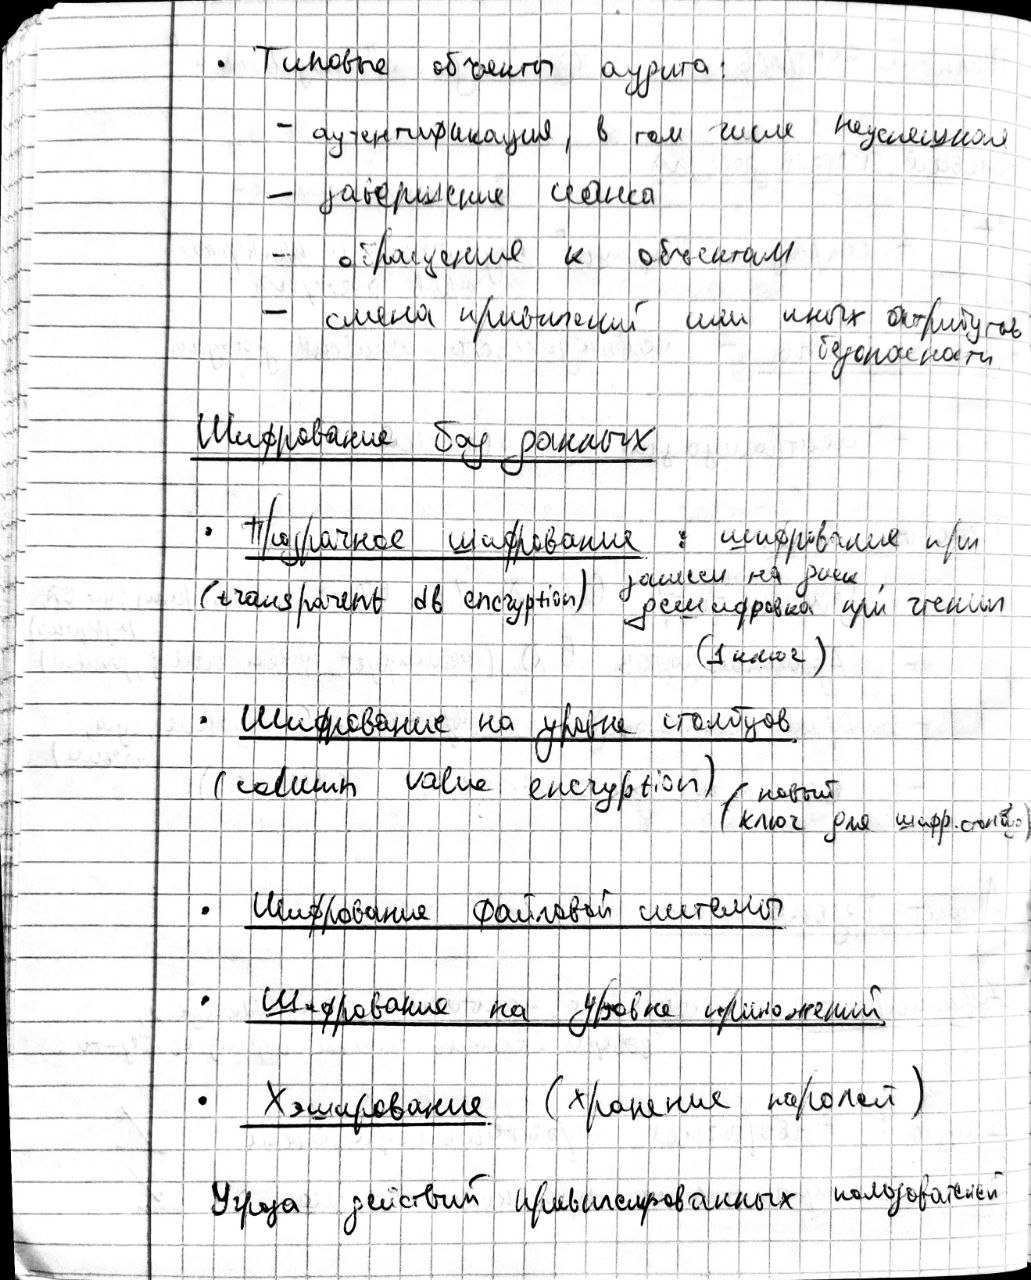 • Типовые объекты аудита:
– аутентификация, в том числе неуспешная
– завершение сеанса
– обращение к объектам
– смена привилегий или иных атрибутов
безопасности
Шифрование баз данных
• Прозрачное шифрование : шифрование при
записи на диск,
(transparent db encryption) дешифровка при чтении
(1 ключ)
• Шифрование на уровне столбцов
(column value encryption)
(новый
ключ для шифр. столбца)
• Шифрование файловой системы
• Шифрование на уровне приложений
• Хэширование (хранение паролей)
Угроза действий привилегированных пользователей